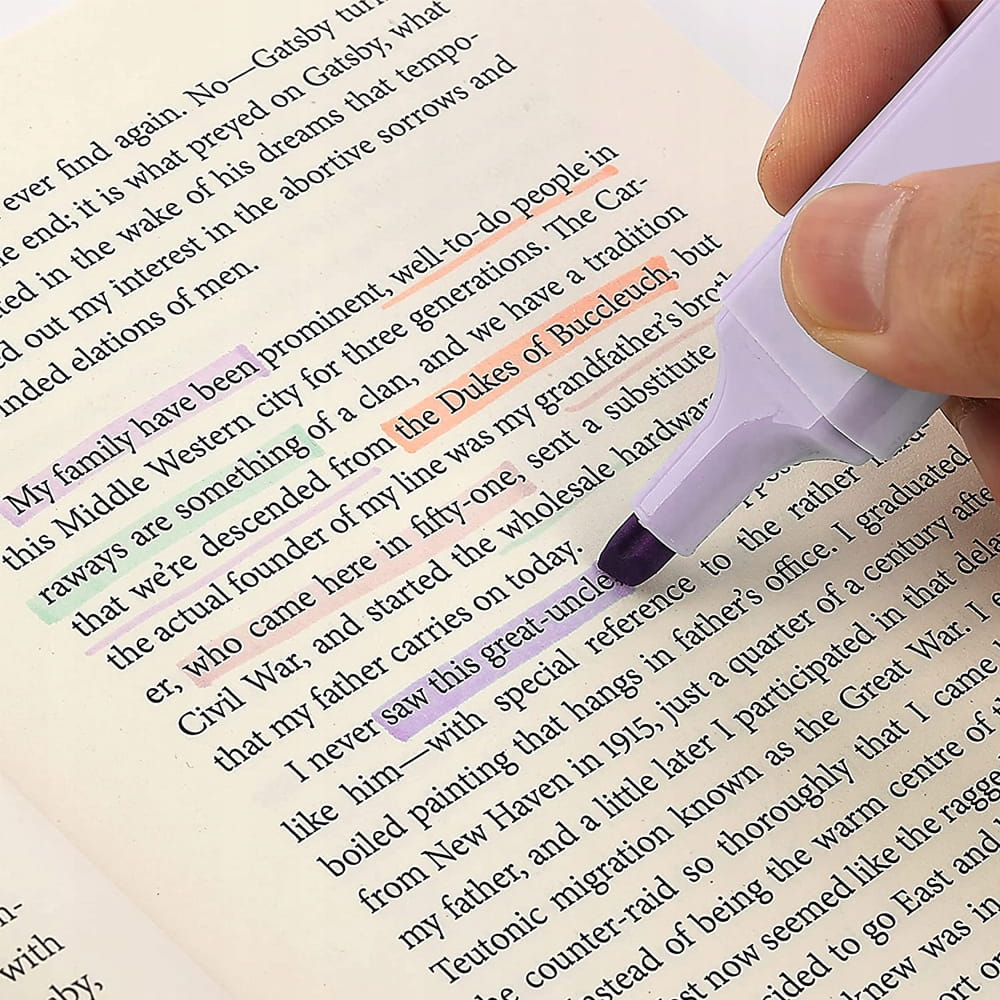 ever find again. No—Gatsby turn
end; it is what preyed on Gatsby, what
in the wake of his dreams that tempo-
out my interest in the abortive sorrows and
elations of men.
My family have been prominent, well-to-do people in
this Middle Western city for three generations. The Car-
raways are something of a clan, and we have a tradition
that we're descended from the Dukes of Buccleuch, but
the actual founder of my line was my grandfather's
er, who came here in fifty-one, sent a substitute
Civil War, and started the wholesale hardware
that my father carries on today.
I never saw this great-uncle
like him—with special reference to the rather
boiled painting that hangs in father's office. I graduated
from New Haven in 1915, just a quarter of a century after
my father, and a little later I participated in that
Teutonic migration known as the Great War. I
counter-raid so thoroughly that I came
instead of being the warm centre of
now seemed like the
to go East and
knew was in
with